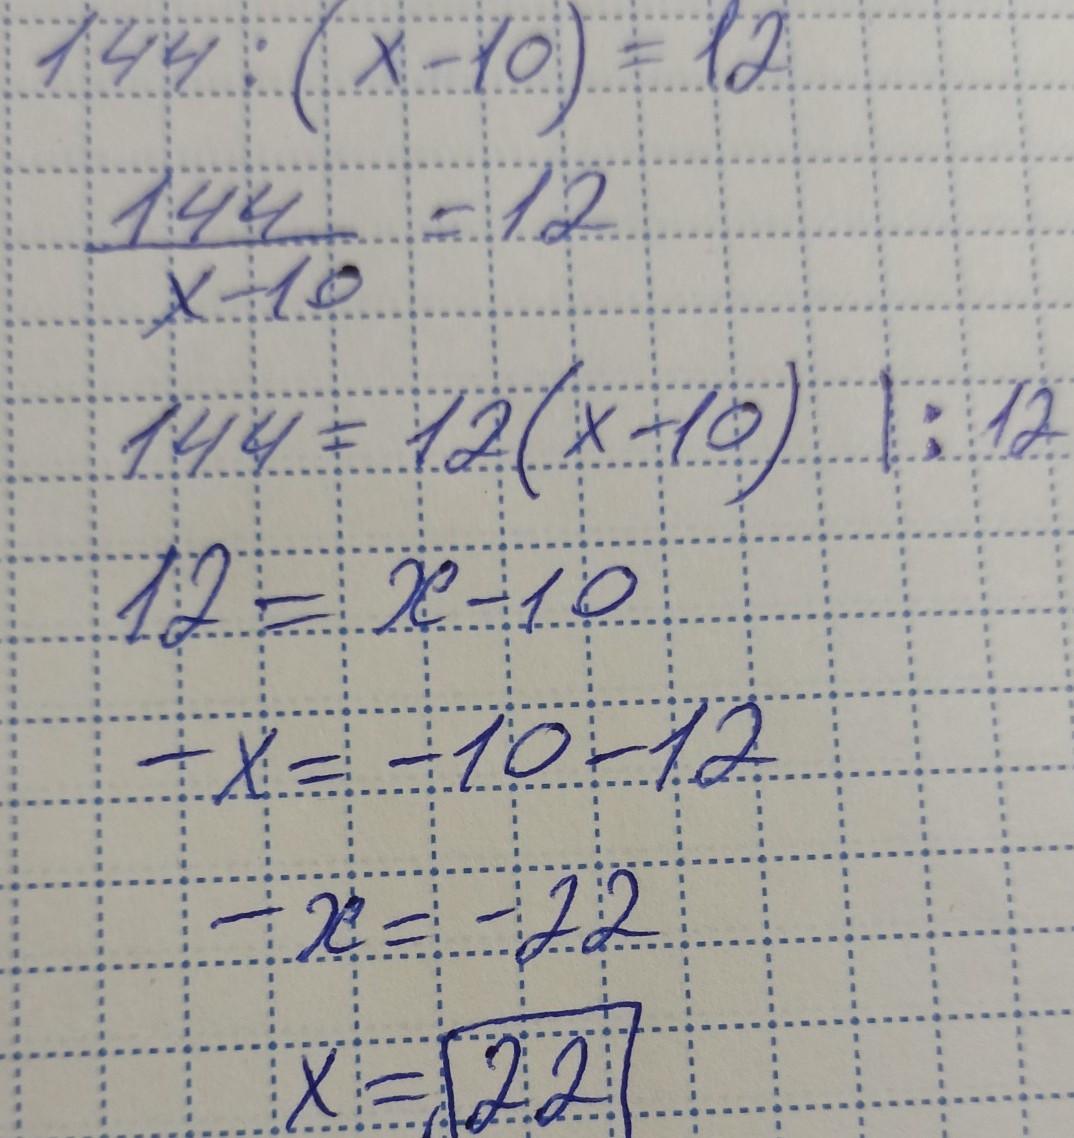 144 : (x - 10) = 12
144
x - 10
= 12
144 = 12(x - 10) | : 12
12 = x - 10
-x = -10 - 12
-x = -22
x = 22